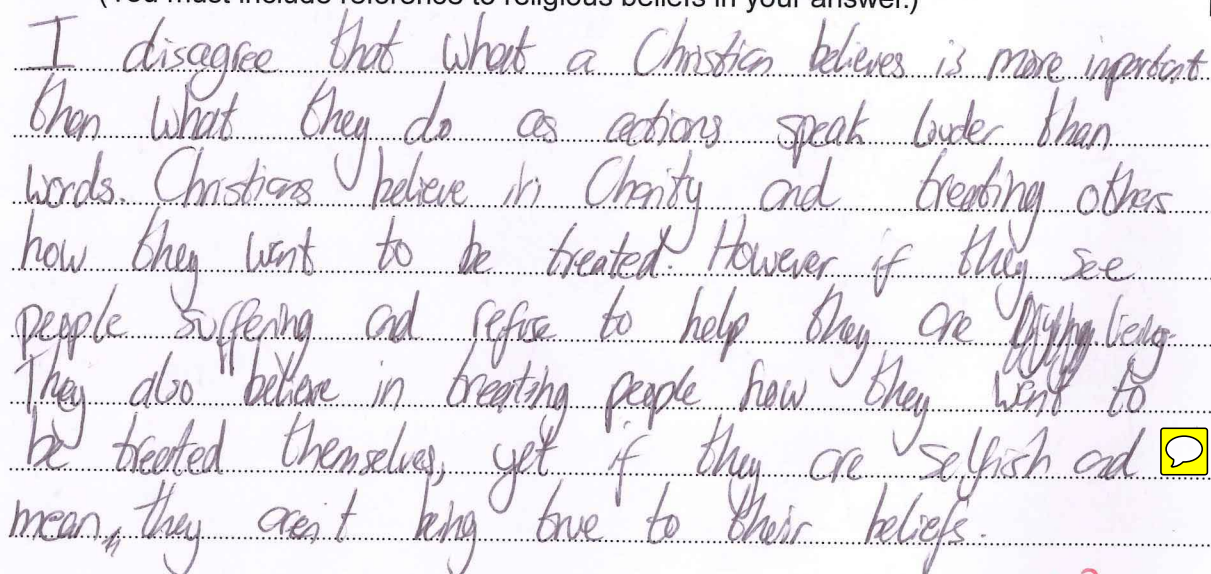 (You must include reference to religious beliefs in your answer.)
I disagree that what a Christian believes is more inportant
than what they do as actions speak louder than
words. Christians believe in Charity and treating others
how they want to be treated. However if they see
people suffering and refuse to help they are lieing.
They also believe in treating people how they want to
be treated themselves, yet if they are selfish and
mean, they aren't being true to their beliefs.